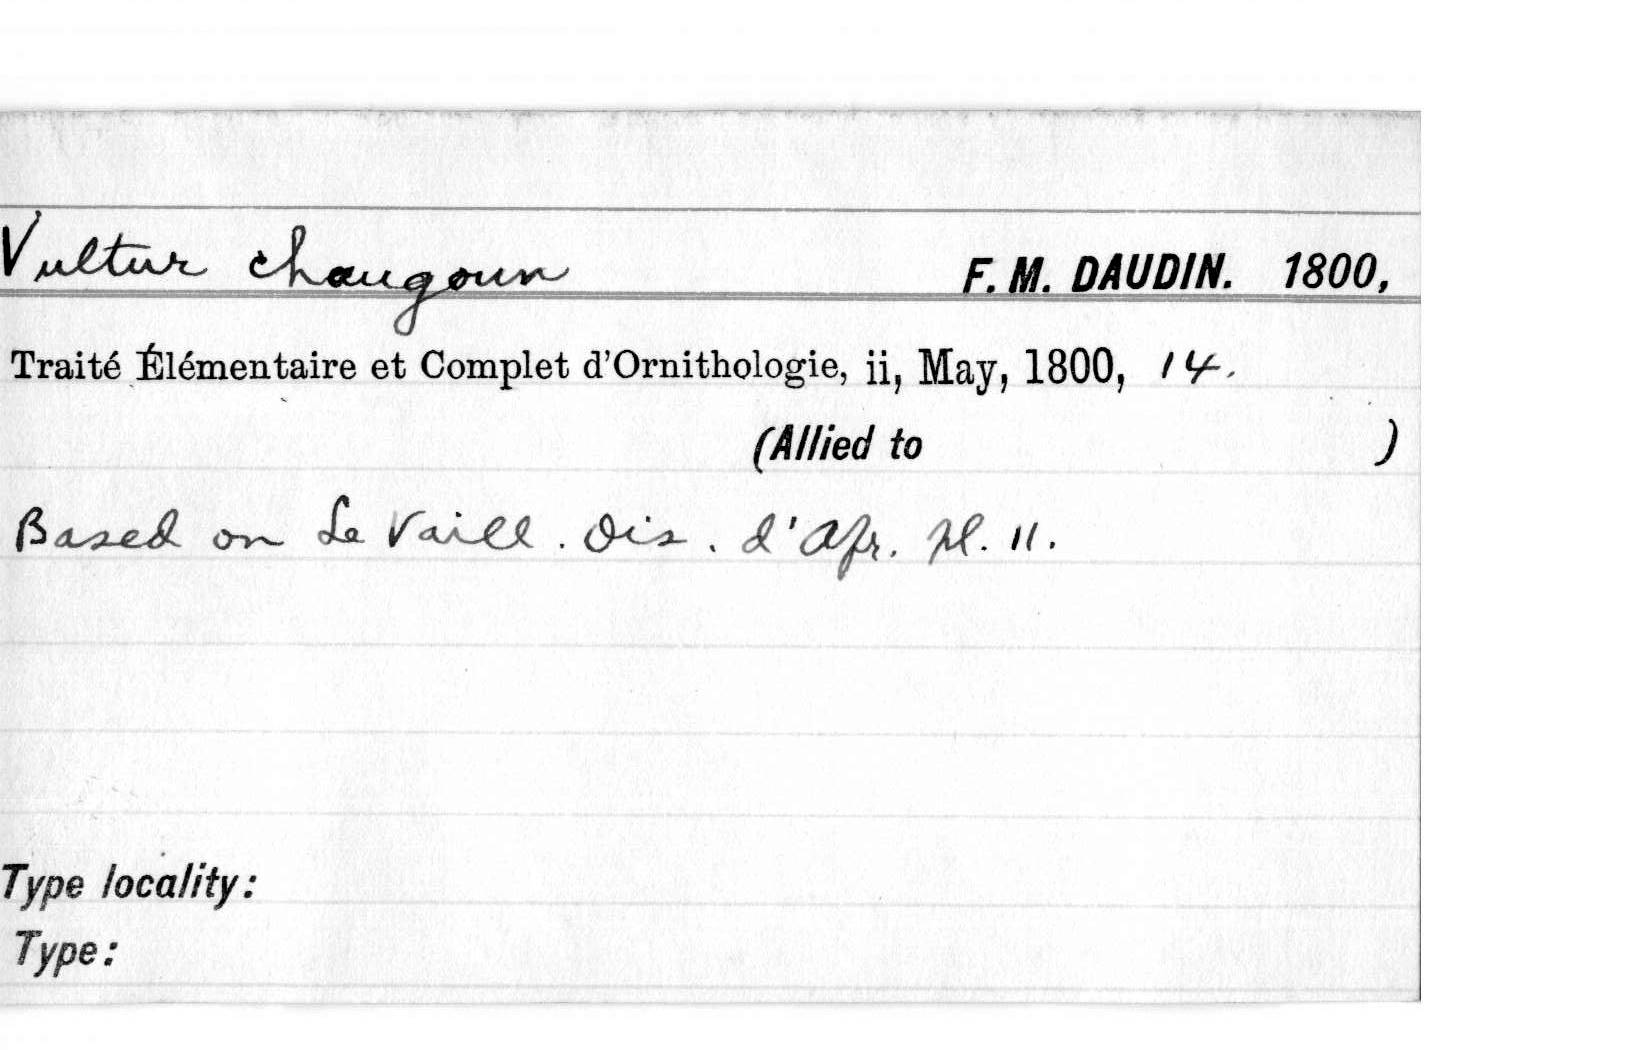 Vultur chaugoun F. M. DAUDIN. 1800,
Traité Élémentaire et Complet d'Ornithologie, ii, May, 1800, 14.
(Allied to )
Based on Le Vaill. Ois. d'Afr. pl. 11.
Type locality:
Type: